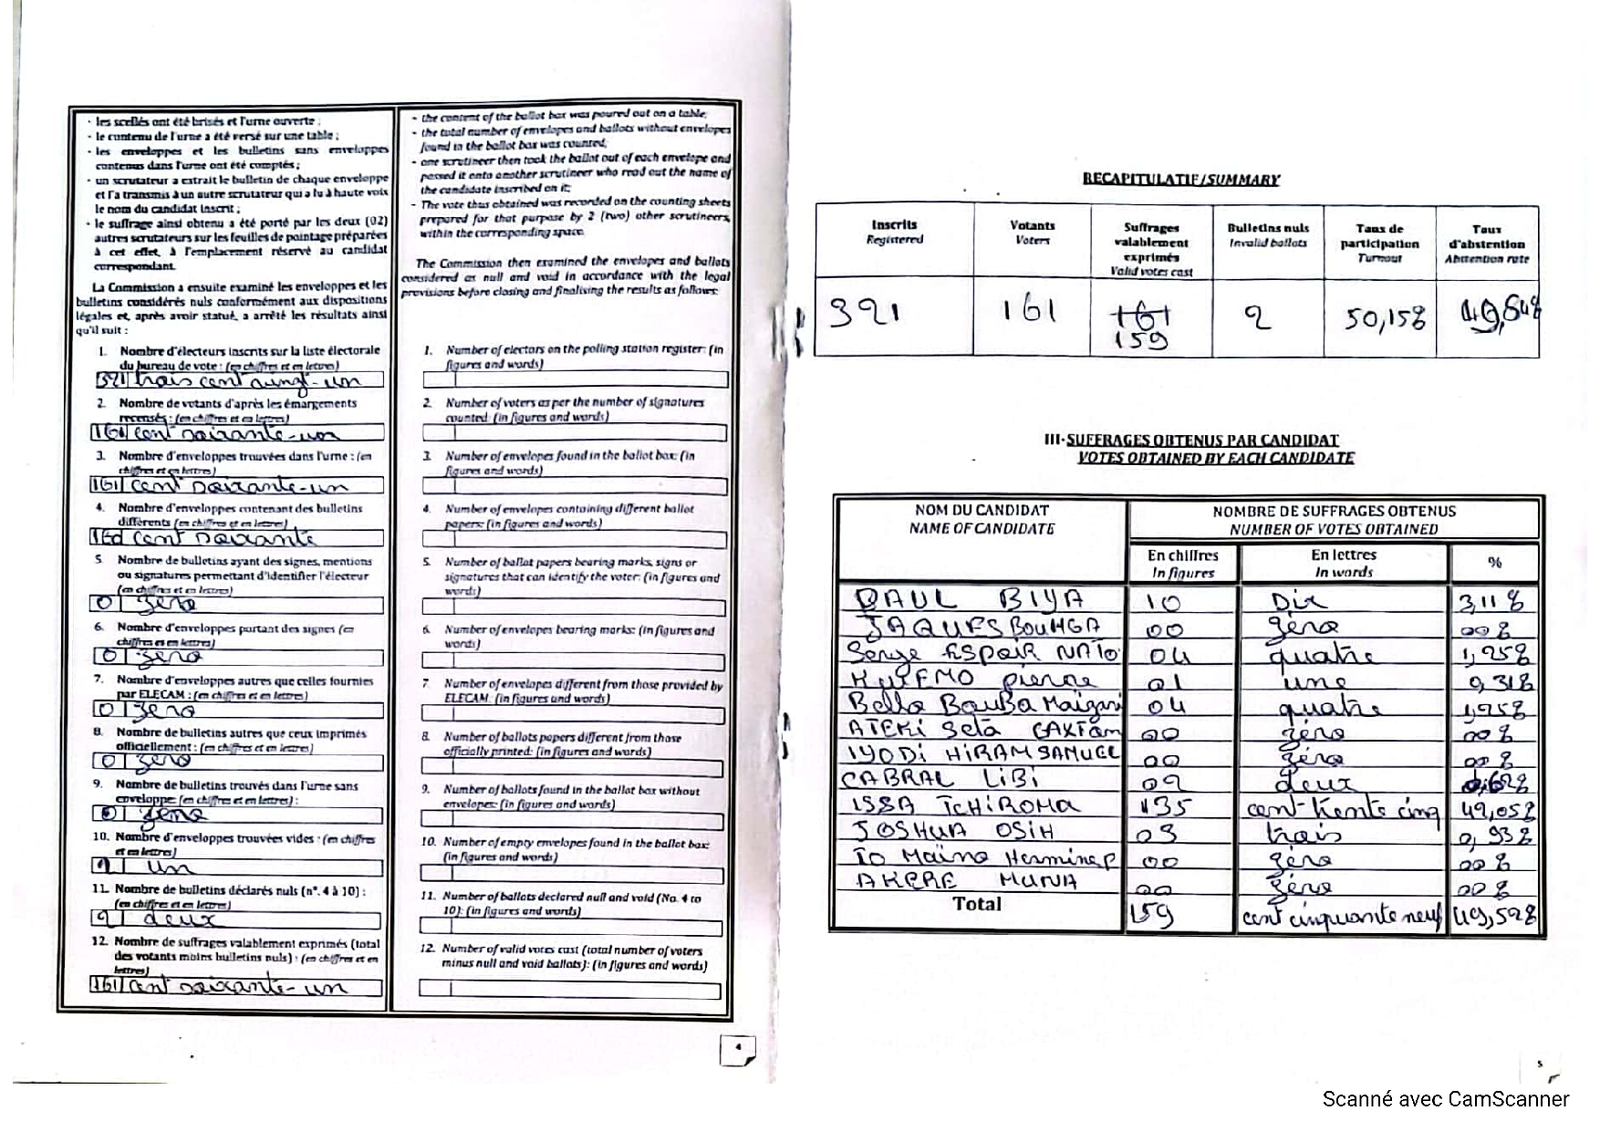 · les scellés ont été brisés et l'urne ouverte ;
· le contenu de l'urne a été versé sur une table ;
· les enveloppes et les bulletins sans enveloppes
contenus dans l'urne ont été comptés ;
· un scrutateur a extrait le bulletin de chaque enveloppe
et l'a transmis à un autre scrutateur qui a lu à haute voix
le nom du candidat inscrit ;
· le suffrage ainsi obtenu a été porté par les deux (02)
autres scrutateurs sur les feuilles de pointage préparées
à cet effet, à l'emplacement réservé au candidat
correspondant.
La Commission a ensuite examiné les enveloppes et les
bulletins considérés nuls conformément aux dispositions
légales et, après avoir statué, a arrêté les résultats ainsi
qu'il suit :
1. Nombre d'électeurs inscrits sur la liste électorale
du bureau de vote : (en chiffres et en lettres)
321 trois cent vingt-un
2. Nombre de votants d'après les émargements
recensés : (en chiffres et en lettres)
161 cent soixante-un
3. Nombre d'enveloppes trouvées dans l'urne : (en
chiffres et en lettres)
161 cent soixante-un
4. Nombre d'enveloppes contenant des bulletins
différents (en chiffres et en lettres)
160 cent soixante
5. Nombre de bulletins ayant des signes, mentions
ou signatures permettant d'identifier l'électeur
(en chiffres et en lettres)
0 zero
6. Nombre d'enveloppes portant des signes (en
chiffres et en lettres)
0 zero
7. Nombre d'enveloppes autres que celles fournies
par ELECAM : (en chiffres et en lettres)
0 zero
8. Nombre de bulletins autres que ceux imprimés
officiellement : (en chiffres et en lettres)
0 zero
9. Nombre de bulletins trouvés dans l'urne sans
enveloppe (en chiffres et en lettres) :
0 zero
10. Nombre d'enveloppes trouvées vides : (en chiffres
et en lettres)
1 un
11. Nombre de bulletins déclarés nuls (n°. 4 à 10) :
(en chiffres et en lettres)
2 deux
12. Nombre de suffrages valablement exprimés (total
des votants moins bulletins nuls) : (en chiffres et en
lettres)
161 cent soixante-un
- the content of the ballot box was poured out on a table;
- the total number of envelopes and ballots without envelopes
found in the ballot box was counted;
- one scrutineer then took the ballot out of each envelope and
passed it onto another scrutineer who read out the name of
the candidate inscribed on it;
- The vote thus obtained was recorded on the counting sheets
prepared for that purpose by 2 (two) other scrutineers,
within the corresponding space.
The Commission then examined the envelopes and ballots
considered as null and void in accordance with the legal
provisions before closing and finalising the results as follows:
1. Number of electors on the polling station register: (in
figures and words)
2. Number of voters as per the number of signatures
counted: (in figures and words)
3. Number of envelopes found in the ballot box: (in
figures and words)
4. Number of envelopes containing different ballot
papers: (in figures and words)
5. Number of ballot papers bearing marks, signs or
signatures that can identify the voter: (in figures and
words)
6. Number of envelopes bearing marks: (in figures and
words)
7. Number of envelopes different from those provided by
ELECAM: (in figures and words)
8. Number of ballots papers different from those
officially printed: (in figures and words)
9. Number of ballots found in the ballot box without
envelopes: (in figures and words)
10. Number of empty envelopes found in the ballot box:
(in figures and words)
11. Number of ballots declared null and void (No. 4 to
10): (in figures and words)
12. Number of valid votes cast (total number of voters
minus null and void ballots): (in figures and words)
4
RECAPITULATIF/SUMMARY
Inscrits Registered
Votants Voters
Suffrages valablement exprimés Valid votes cast
Bulletins nuls Invalid ballots
Taux de participation Turnout
Taux d'abstention Abstention rate
321 161 161 159 2 50,15% 49,84%
III-SUFFRAGES OBTENUS PAR CANDIDAT
VOTES OBTAINED BY EACH CANDIDATE
NOM DU CANDIDAT
NAME OF CANDIDATE
NOMBRE DE SUFFRAGES OBTENUS
NUMBER OF VOTES OBTAINED
En chiffres In figures
En lettres In words
%
PAUL BIYA 10 Dix 3,11%
JAQUES BOUHGA 00 zéro 00%
Serge ESPOIR NATO 04 quatre 1,25%
KWEMO pierre 01 une 0,31%
Bello Bouba Maigari 04 quatre 1,25%
ATEKI Seta CAXTON 00 zéro 00%
IYODI HIRAM SAMUEL 00 zéro 00%
CABRAL LIBI 02 deux 0,62%
ISSA TCHIROMA 135 cent-trente cinq 42,05%
JOSHUA OSIH 03 trois 0,93%
TO Maïna Hermine P 00 zéro 00%
AKERE MUNA 00 zéro 00%
Total 159 cent cinquante neuf 49,52%
5
Scanné avec CamScanner